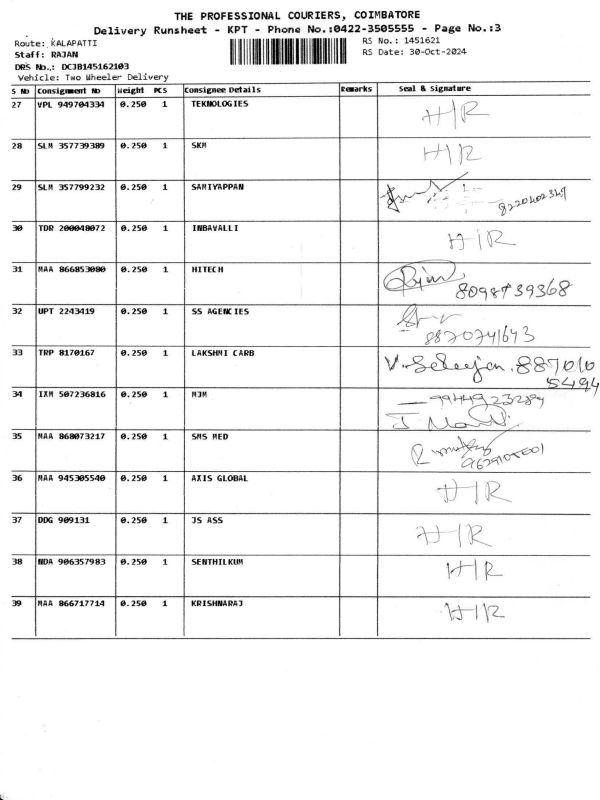 THE PROFESSIONAL COURIERS, COIMBATORE
Delivery Runsheet - KPT - Phone No.:0422-3505555 - Page No.:3
Route: KALAPATTI
RS No.: 1451621
Staff: RAJAN
RS Date: 30-Oct-2024
DRS No.,: DCJB145162103
Vehicle: Two Wheeler Delivery
S No Consignment No Weight PCS Consignee Details Remarks Seal & Signature
27 VPL 949704334 0.250 1 TEKNOLOGIES H/R
28 SLM 357739389 0.250 1 SKM H/R
29 SLM 357799232 0.250 1 SAMIYAPPAN
30 TDR 200048072 0.250 1 INBAVALLI H/R
31 MAA 866853080 0.250 1 HITECH 8098739368
32 UPT 2243419 0.250 1 SS AGENCIES 8870741643
33 TRP 8170167 0.250 1 LAKSHMI CARB 887010
5494
34 IXM 507236816 0.250 1 MJM 9944923284
35 MAA 868073217 0.250 1 SMS MED
36 MAA 945305540 0.250 1 AXIS GLOBAL H/R
37 DDG 909131 0.250 1 JS ASS H/R
38 NDA 906357983 0.250 1 SENTHILKUM H/R
39 MAA 866717714 0.250 1 KRISHNARAJ H/R